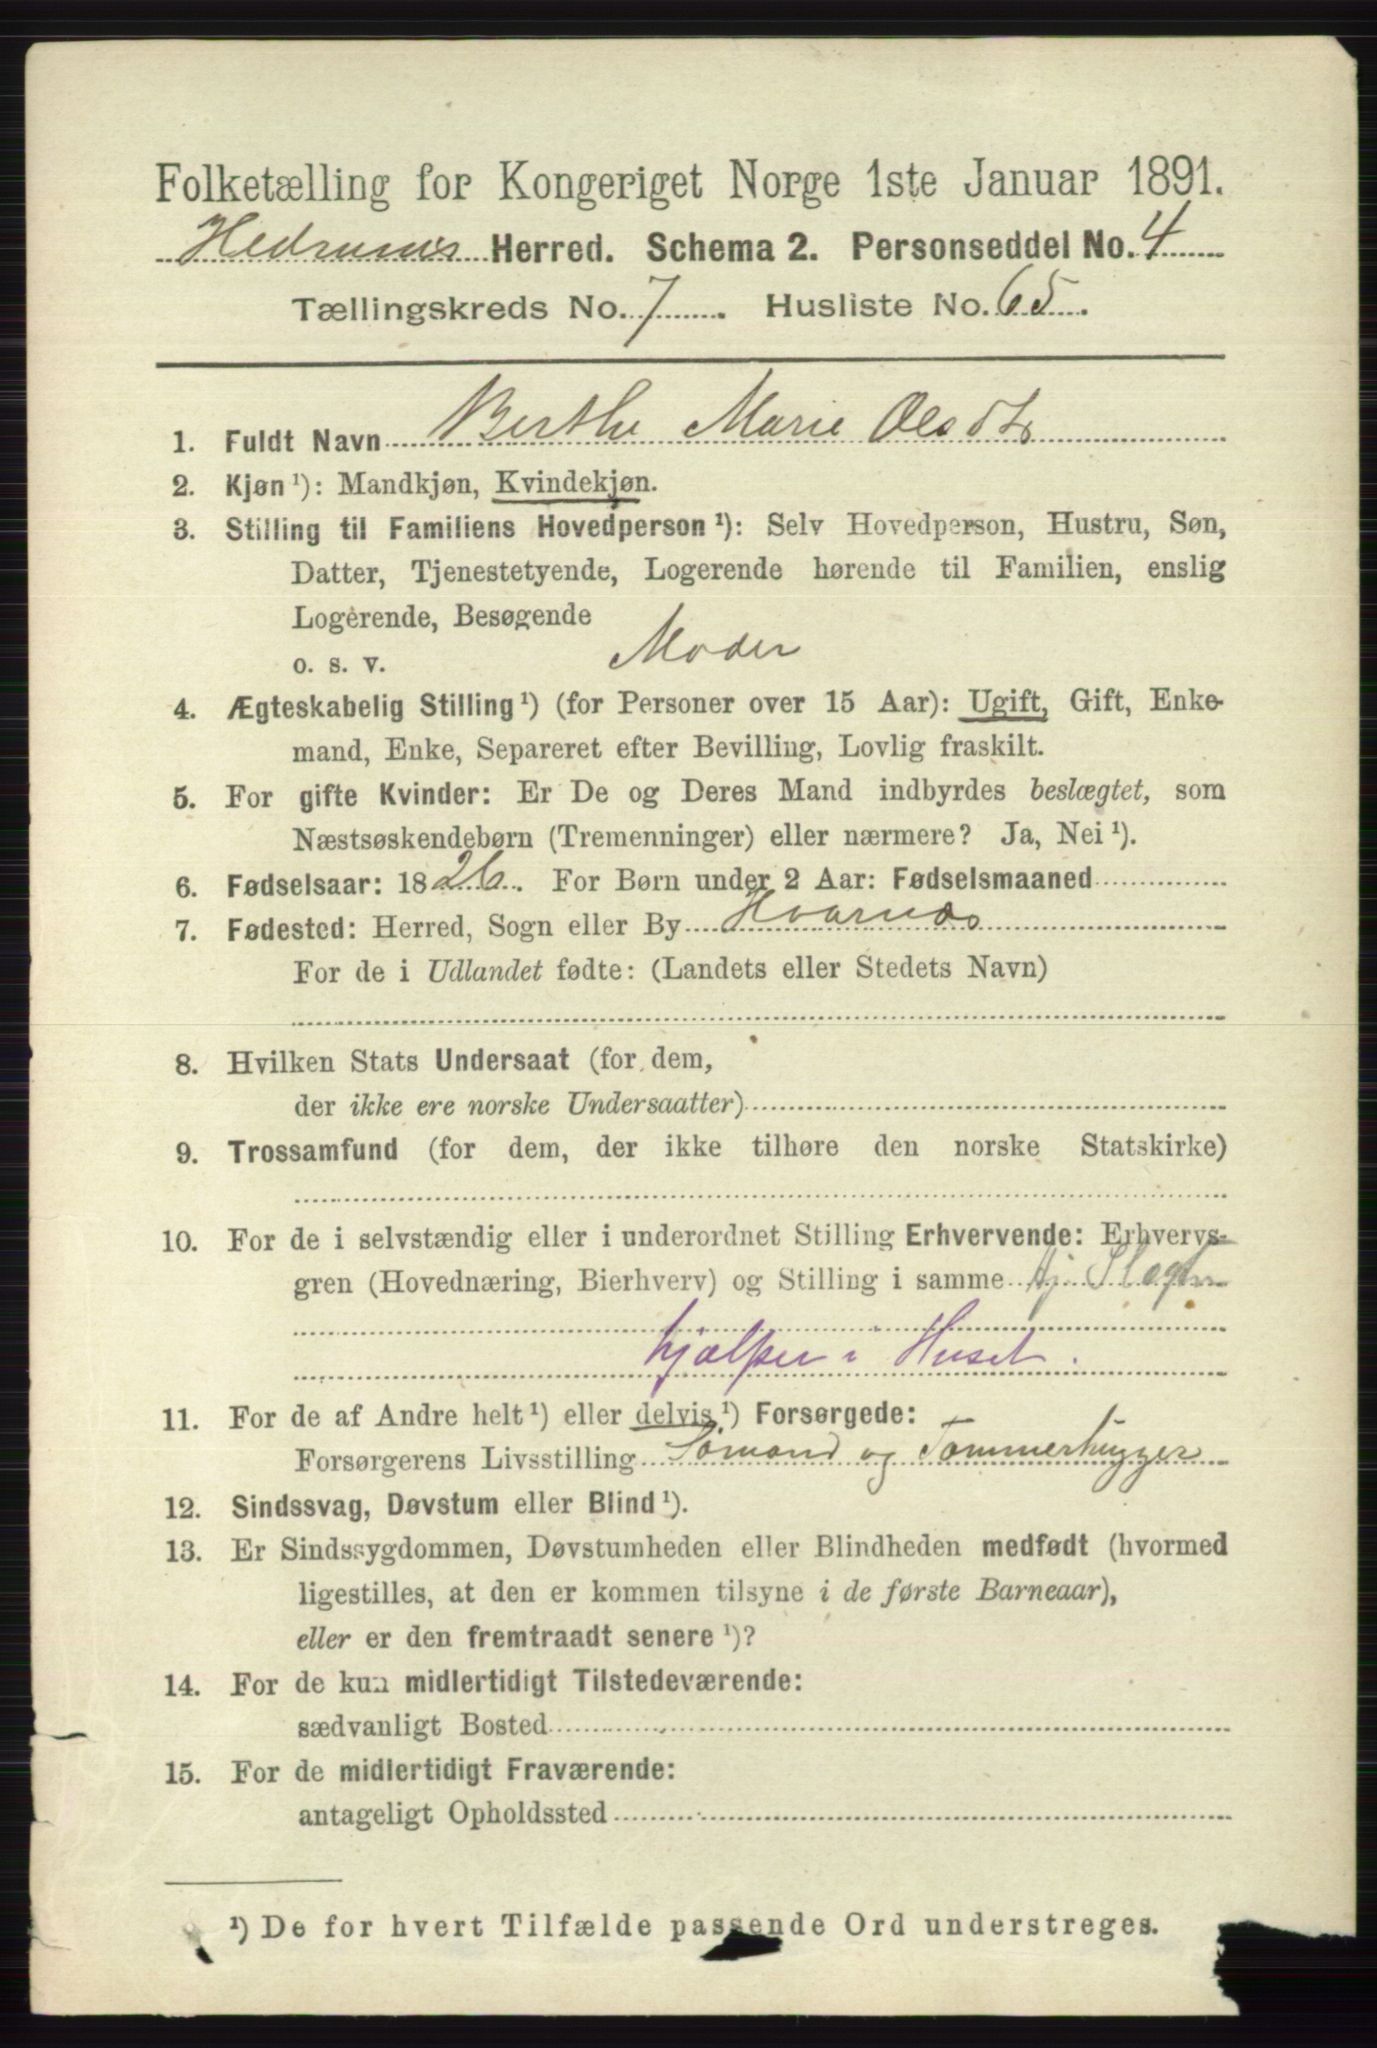 Folketælling for Kongeriget Norge 1ste Januar 1891.
Hedrums Herred. Schema 2. Personseddel No. 4
Tællingskreds No. 7. Husliste No. 65.
1. Fuldt Navn Berthe Marie Olsdtr
2. Kjøn ¹): Mandkjøn, Kvindekjøn.
3. Stilling til Familiens Hovedperson ¹): Selv Hovedperson, Hustru, Søn,
Datter, Tjenestetyende, Logerende hørende til Familien, enslig
Logerende, Besøgende
o. s. v. Moder
4. Ægteskabelig Stilling ¹) (for Personer over 15 Aar): Ugift, Gift, Enke-
mand, Enke, Separeret efter Bevilling, Lovlig fraskilt.
5. For gifte Kvinder: Er De og Deres Mand indbyrdes beslægtet, som
Næstsøskendebørn (Tremenninger) eller nærmere? Ja, Nei ¹).
6. Fødselsaar: 1826. For Børn under 2 Aar: Fødselsmaaned
7. Fødested: Herred, Sogn eller By Hvarnæs
For de i Udlandet fødte: (Landets eller Stedets Navn)
8. Hvilken Stats Undersaat (for dem,
der ikke ere norske Undersaatter)
9. Trossamfund (for dem, der ikke tilhøre den norske Statskirke)
10. For de i selvstændig eller i underordnet Stilling Erhvervende: Erhvervs-
gren (Hovednæring, Bierhverv) og Stilling i samme
hjælper i Huset.
11. For de af Andre helt ¹) eller delvis ¹) Forsørgede:
Forsørgerens Livsstilling Sømand og Tømmerhugger
12. Sindssvag, Døvstum eller Blind ¹).
13. Er Sindssygdommen, Døvstumheden eller Blindheden medfødt (hvormed
ligestilles, at den er kommen tilsyne i de første Barneaar),
eller er den fremtraadt senere ¹)?
14. For de kun midlertidigt Tilstedeværende:
sædvanligt Bosted
15. For de midlertidigt Fraværende:
antageligt Opholdssted
¹) De for hvert Tilfælde passende Ord understreges.